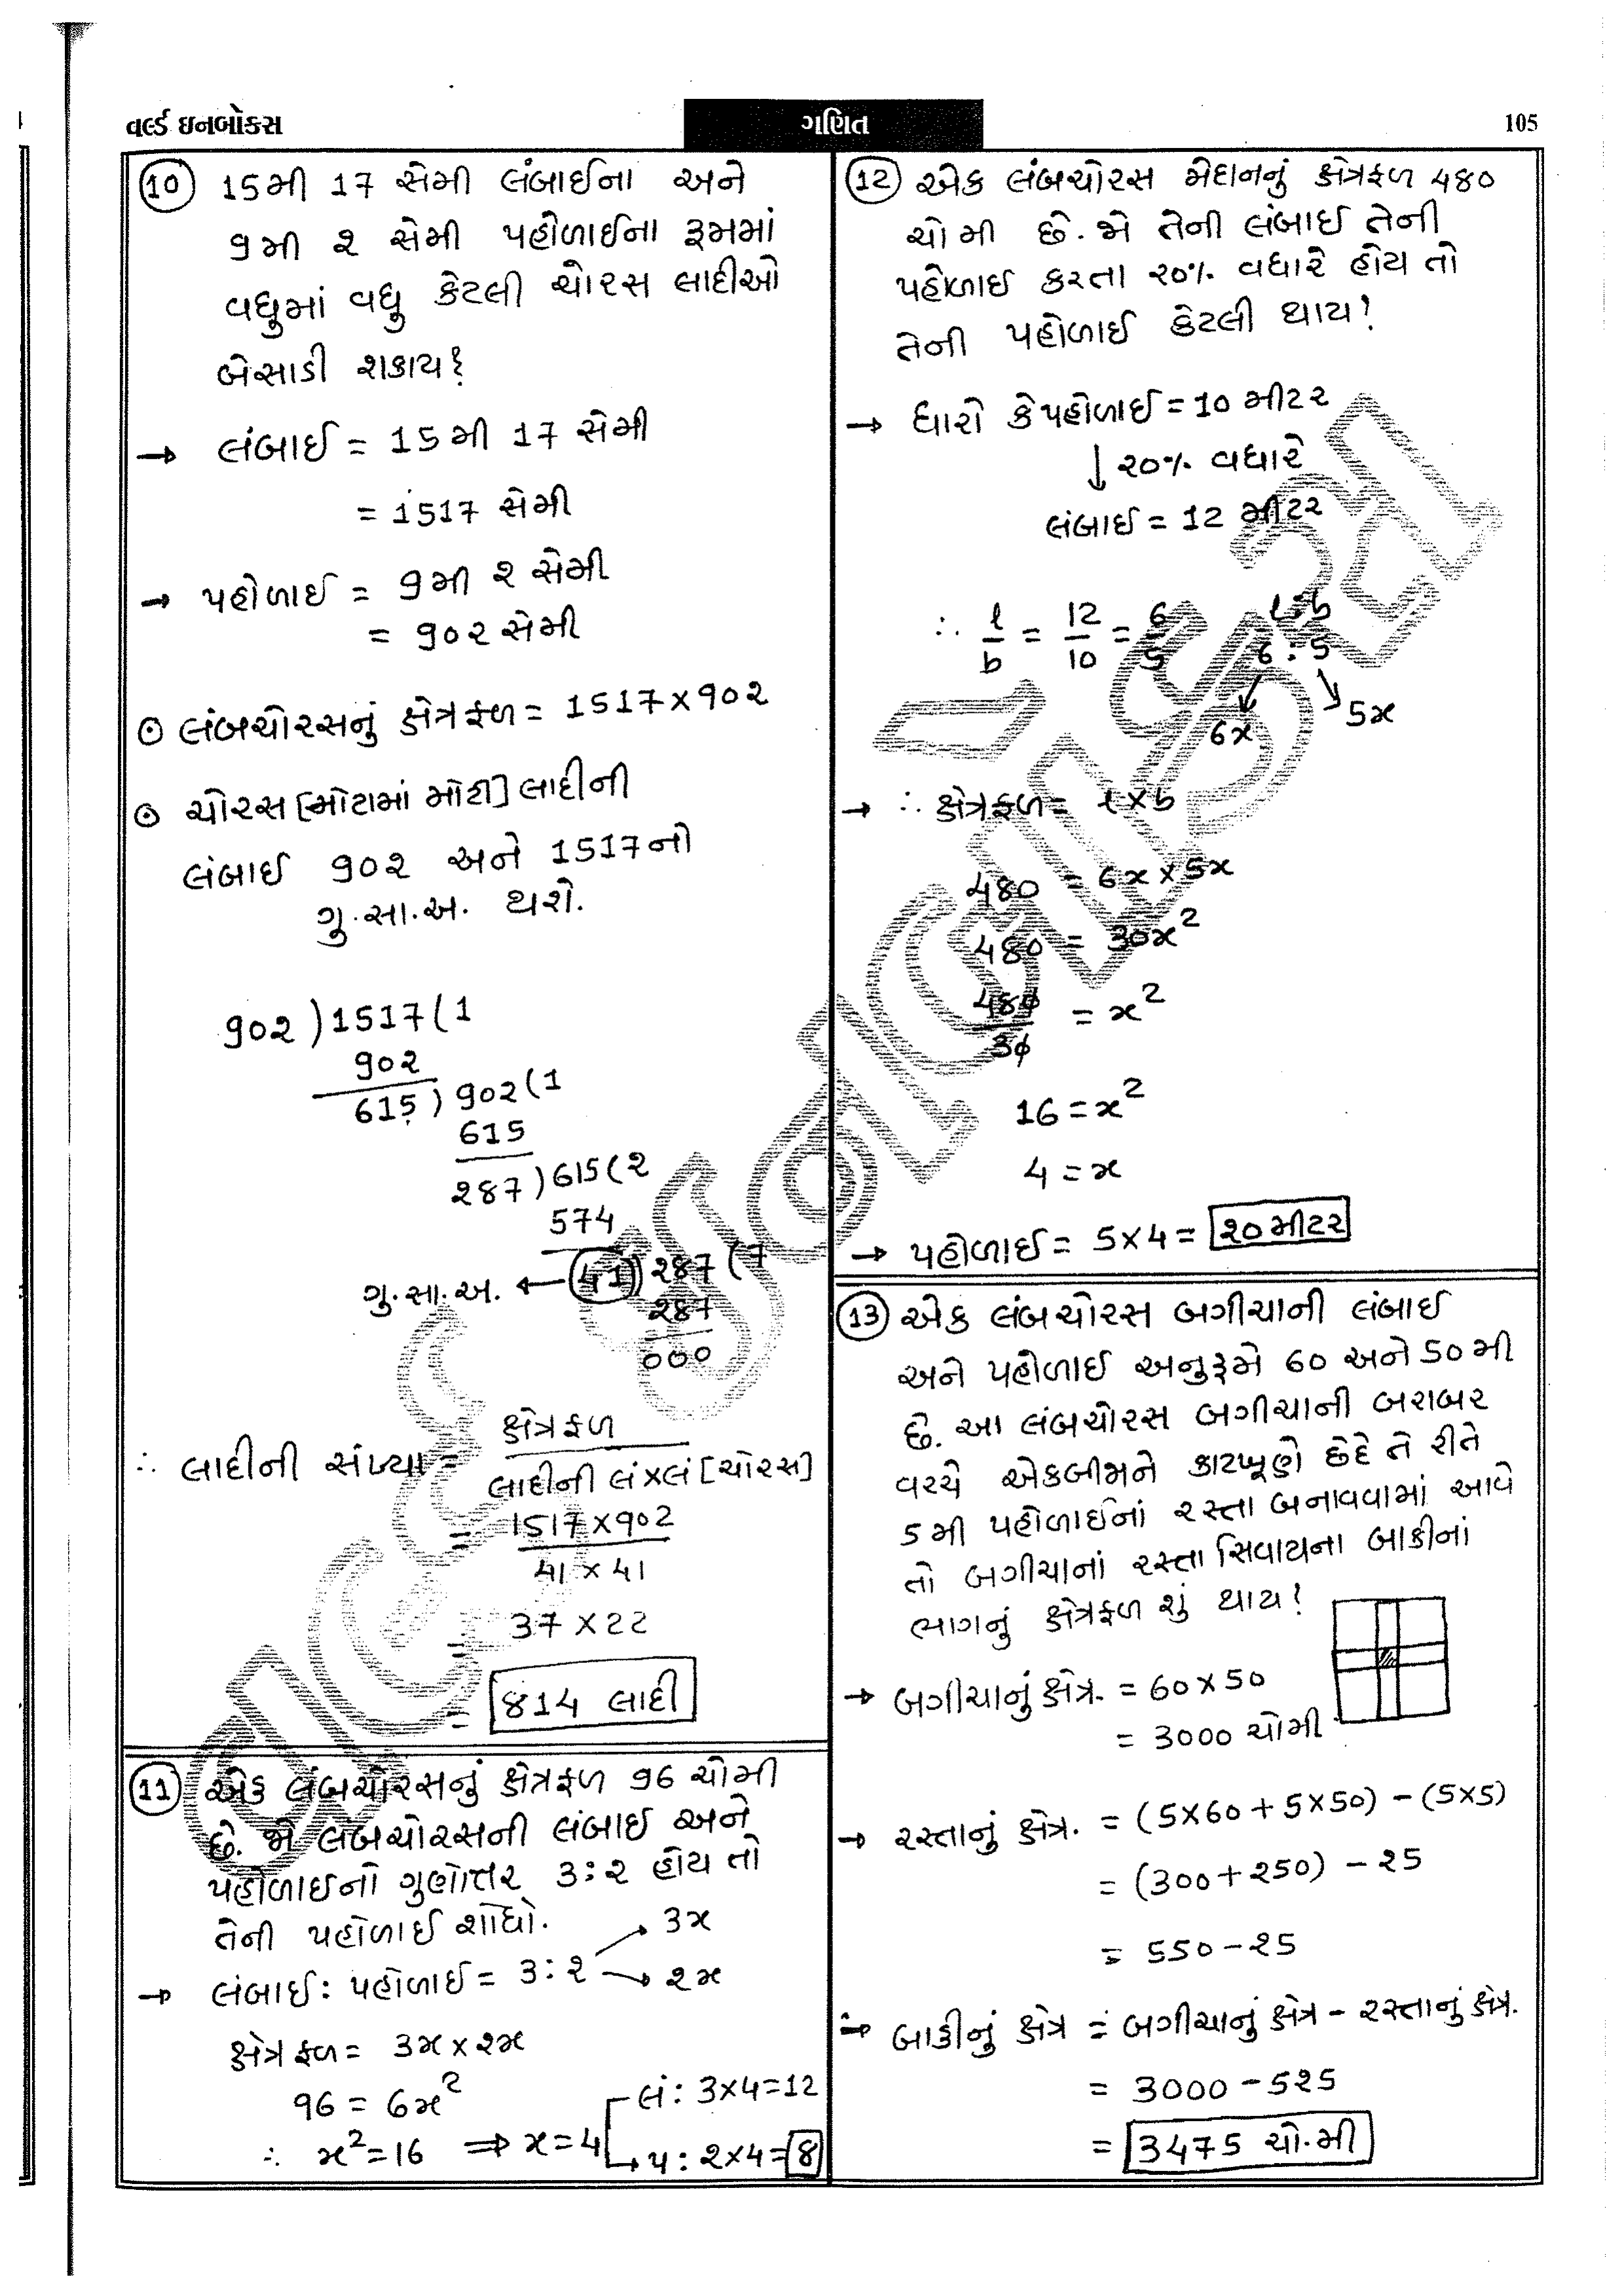 વર્લ્ડ ઇનબોક્સ
ગણિત
105
(10) 15મી 17 સેમી લંબાઈના અને
9મી ૨ સેમી પહોળાઈના રૂમમાં
વધુમાં વધુ કેટલી ચોરસ લાદીઓ
બેસાડી શકાય?
→ લંબાઈ = 15મી 17 સેમી
= 1517 સેમી
→ પહોળાઈ = 9મી ૨ સેમી
= 90૨ સેમી
⊙ લંબચોરસનું ક્ષેત્રફળ = 1517×90૨
⊙ ચોરસ [મોટામાં મોટી] લાદીની
લંબાઈ 90૨ અને 1517નો
ગુ.સા.અ. થશે.
90૨ ) 1517 ( 1
90૨
615 ) 90૨ ( 1
615
૨87 ) 615 ( ૨
574
ગુ.સા.અ. ← (41) ) ૨87 ( 7
૨87
000
∴ લાદીની સંખ્યા = ક્ષેત્રફળ
લાદીની લં×લં [ચોરસ]
= 1517×902
41 × 41
= 37 × 22
= 814 લાદી
(11) એક લંબચોરસનું ક્ષેત્રફળ 96 ચોમી
છે. જો લંબચોરસની લંબાઈ અને
પહોળાઈનો ગુણોત્તર 3:૨ હોય તો
તેની પહોળાઈ શોધો.
→ લંબાઈ : પહોળાઈ = 3:૨
3x
૨x
ક્ષેત્રફળ = 3x × ૨x
96 = 6x²
∴ x² = 16 ⇒ x = 4
લં : 3×4=12
પ : ૨×4=8
(12) એક લંબચોરસ મેદાનનું ક્ષેત્રફળ 480
ચો મી છે. જો તેની લંબાઈ તેની
પહોળાઈ કરતા ૨0% વધારે હોય તો
તેની પહોળાઈ કેટલી થાય?
→ ધારો કે પહોળાઈ = 10 મીટર
↓ ૨0% વધારે
લંબાઈ = 12 મીટર
∴ l/b = 12/10 = 6/5
l:b
6 : 5
6x
5x
→ ∴ ક્ષેત્રફળ = l × b
480 = 6x × 5x
480 = 30x²
480/30 = x²
16 = x²
4 = x
→ પહોળાઈ = 5×4 = ૨0 મીટર
(13) એક લંબચોરસ બગીચાની લંબાઈ
અને પહોળાઈ અનુક્રમે 60 અને 50 મી
છે. આ લંબચોરસ બગીચાની બરાબર
વચ્ચે એકબીજાને કાટખૂણે છેદે તે રીતે
5 મી પહોળાઈનાં રસ્તા બનાવવામાં આવે
તો બગીચાનાં રસ્તા સિવાયના બાકીનાં
ભાગનું ક્ષેત્રફળ શું થાય?
→ બગીચાનું ક્ષેત્ર. = 60×50
= 3000 ચોમી
→ રસ્તાનું ક્ષેત્ર. = (5×60 + 5×50) - (5×5)
= (300+૨50) - ૨5
= 550-૨5
⇒ બાકીનું ક્ષેત્ર = બગીચાનું ક્ષેત્ર - રસ્તાનું ક્ષેત્ર.
= 3000 - 5૨5
= 3475 ચો.મી